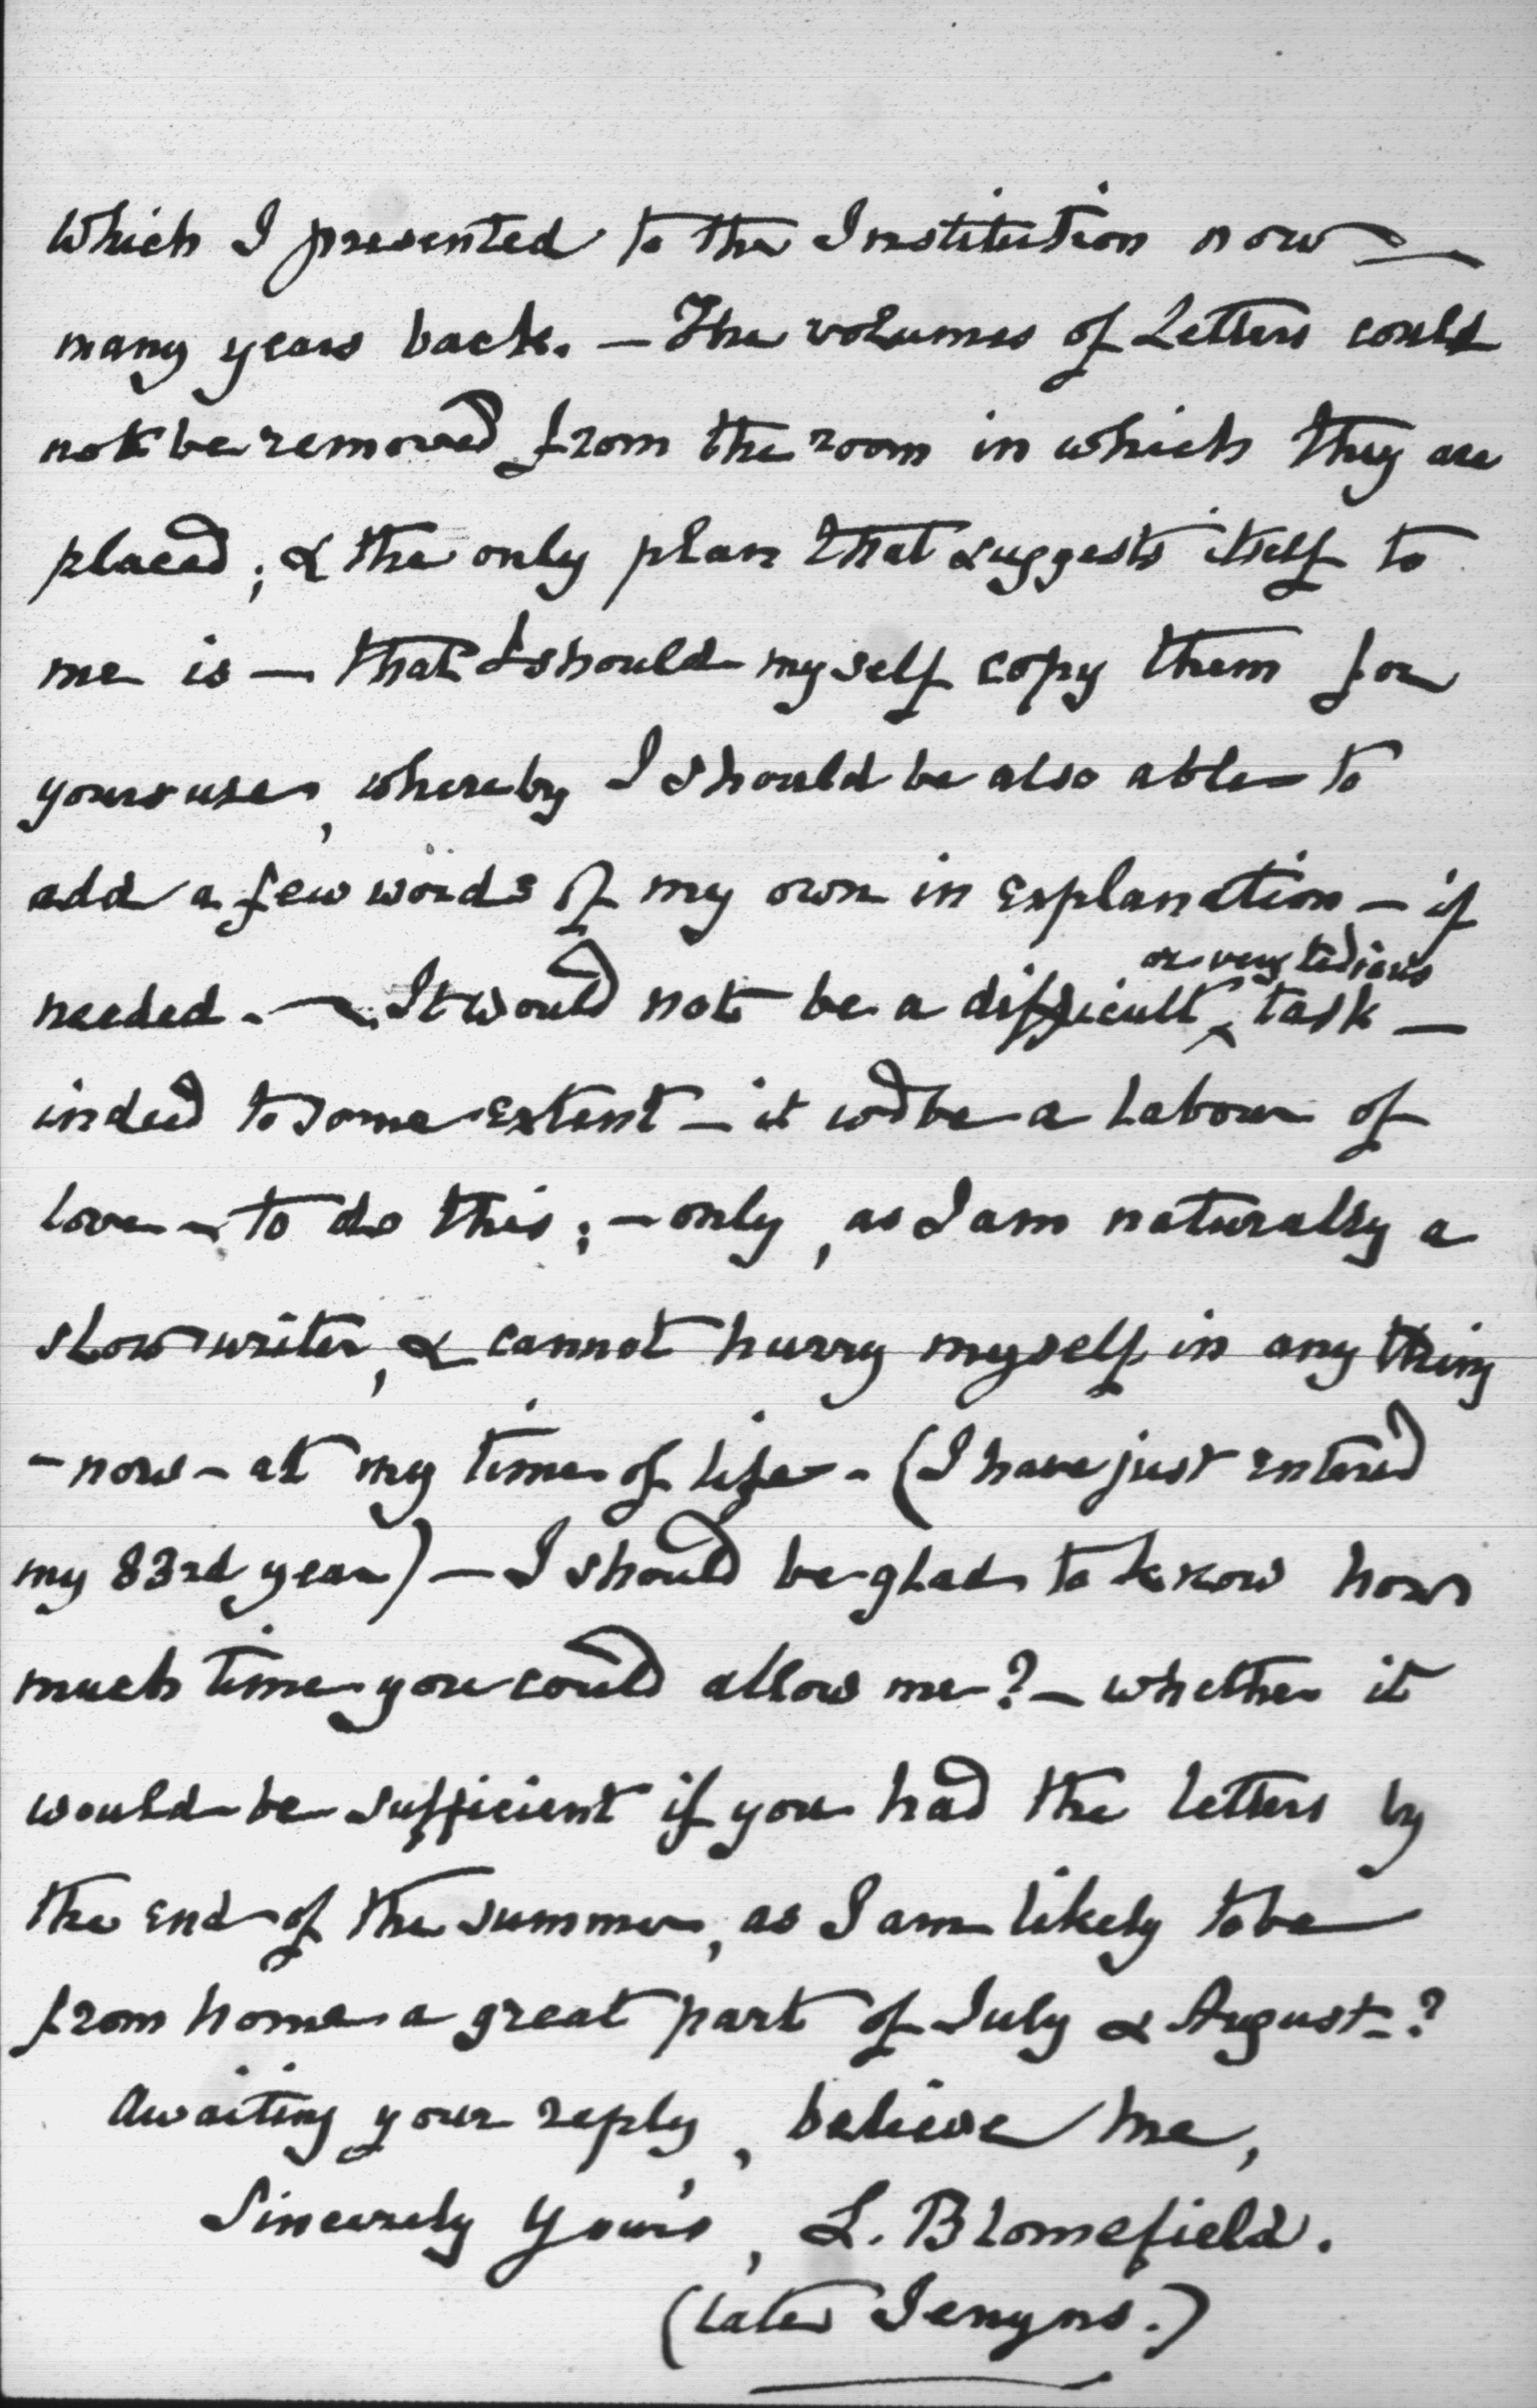 which I presented to the Institution now —
many years back. — The volumes of Letters could
not be removed from the room in which they are
placed; & the only plan that suggests itself to
me is — that I should myself copy them for
your use, whereby I should be also able to
add a few words of my own in explanation — if
or very tedious
needed. — It would not be a difficult ^ task —
indeed to some extent — it wd be a labour of
love — to do this; — only, as I am naturally a
slow writer, & cannot hurry myself in any thing
- now - at my time of life - (I have just entered
my 83rd year) — I should be glad to know how
much time you could allow me? — whether it
would be sufficient if you had the letters by
the end of the summer, as I am likely to be
from home a great part of July & August -?
Awaiting your reply, believe me,
Sincerely Yours, L. Blomefield.
(late Jenyns.)